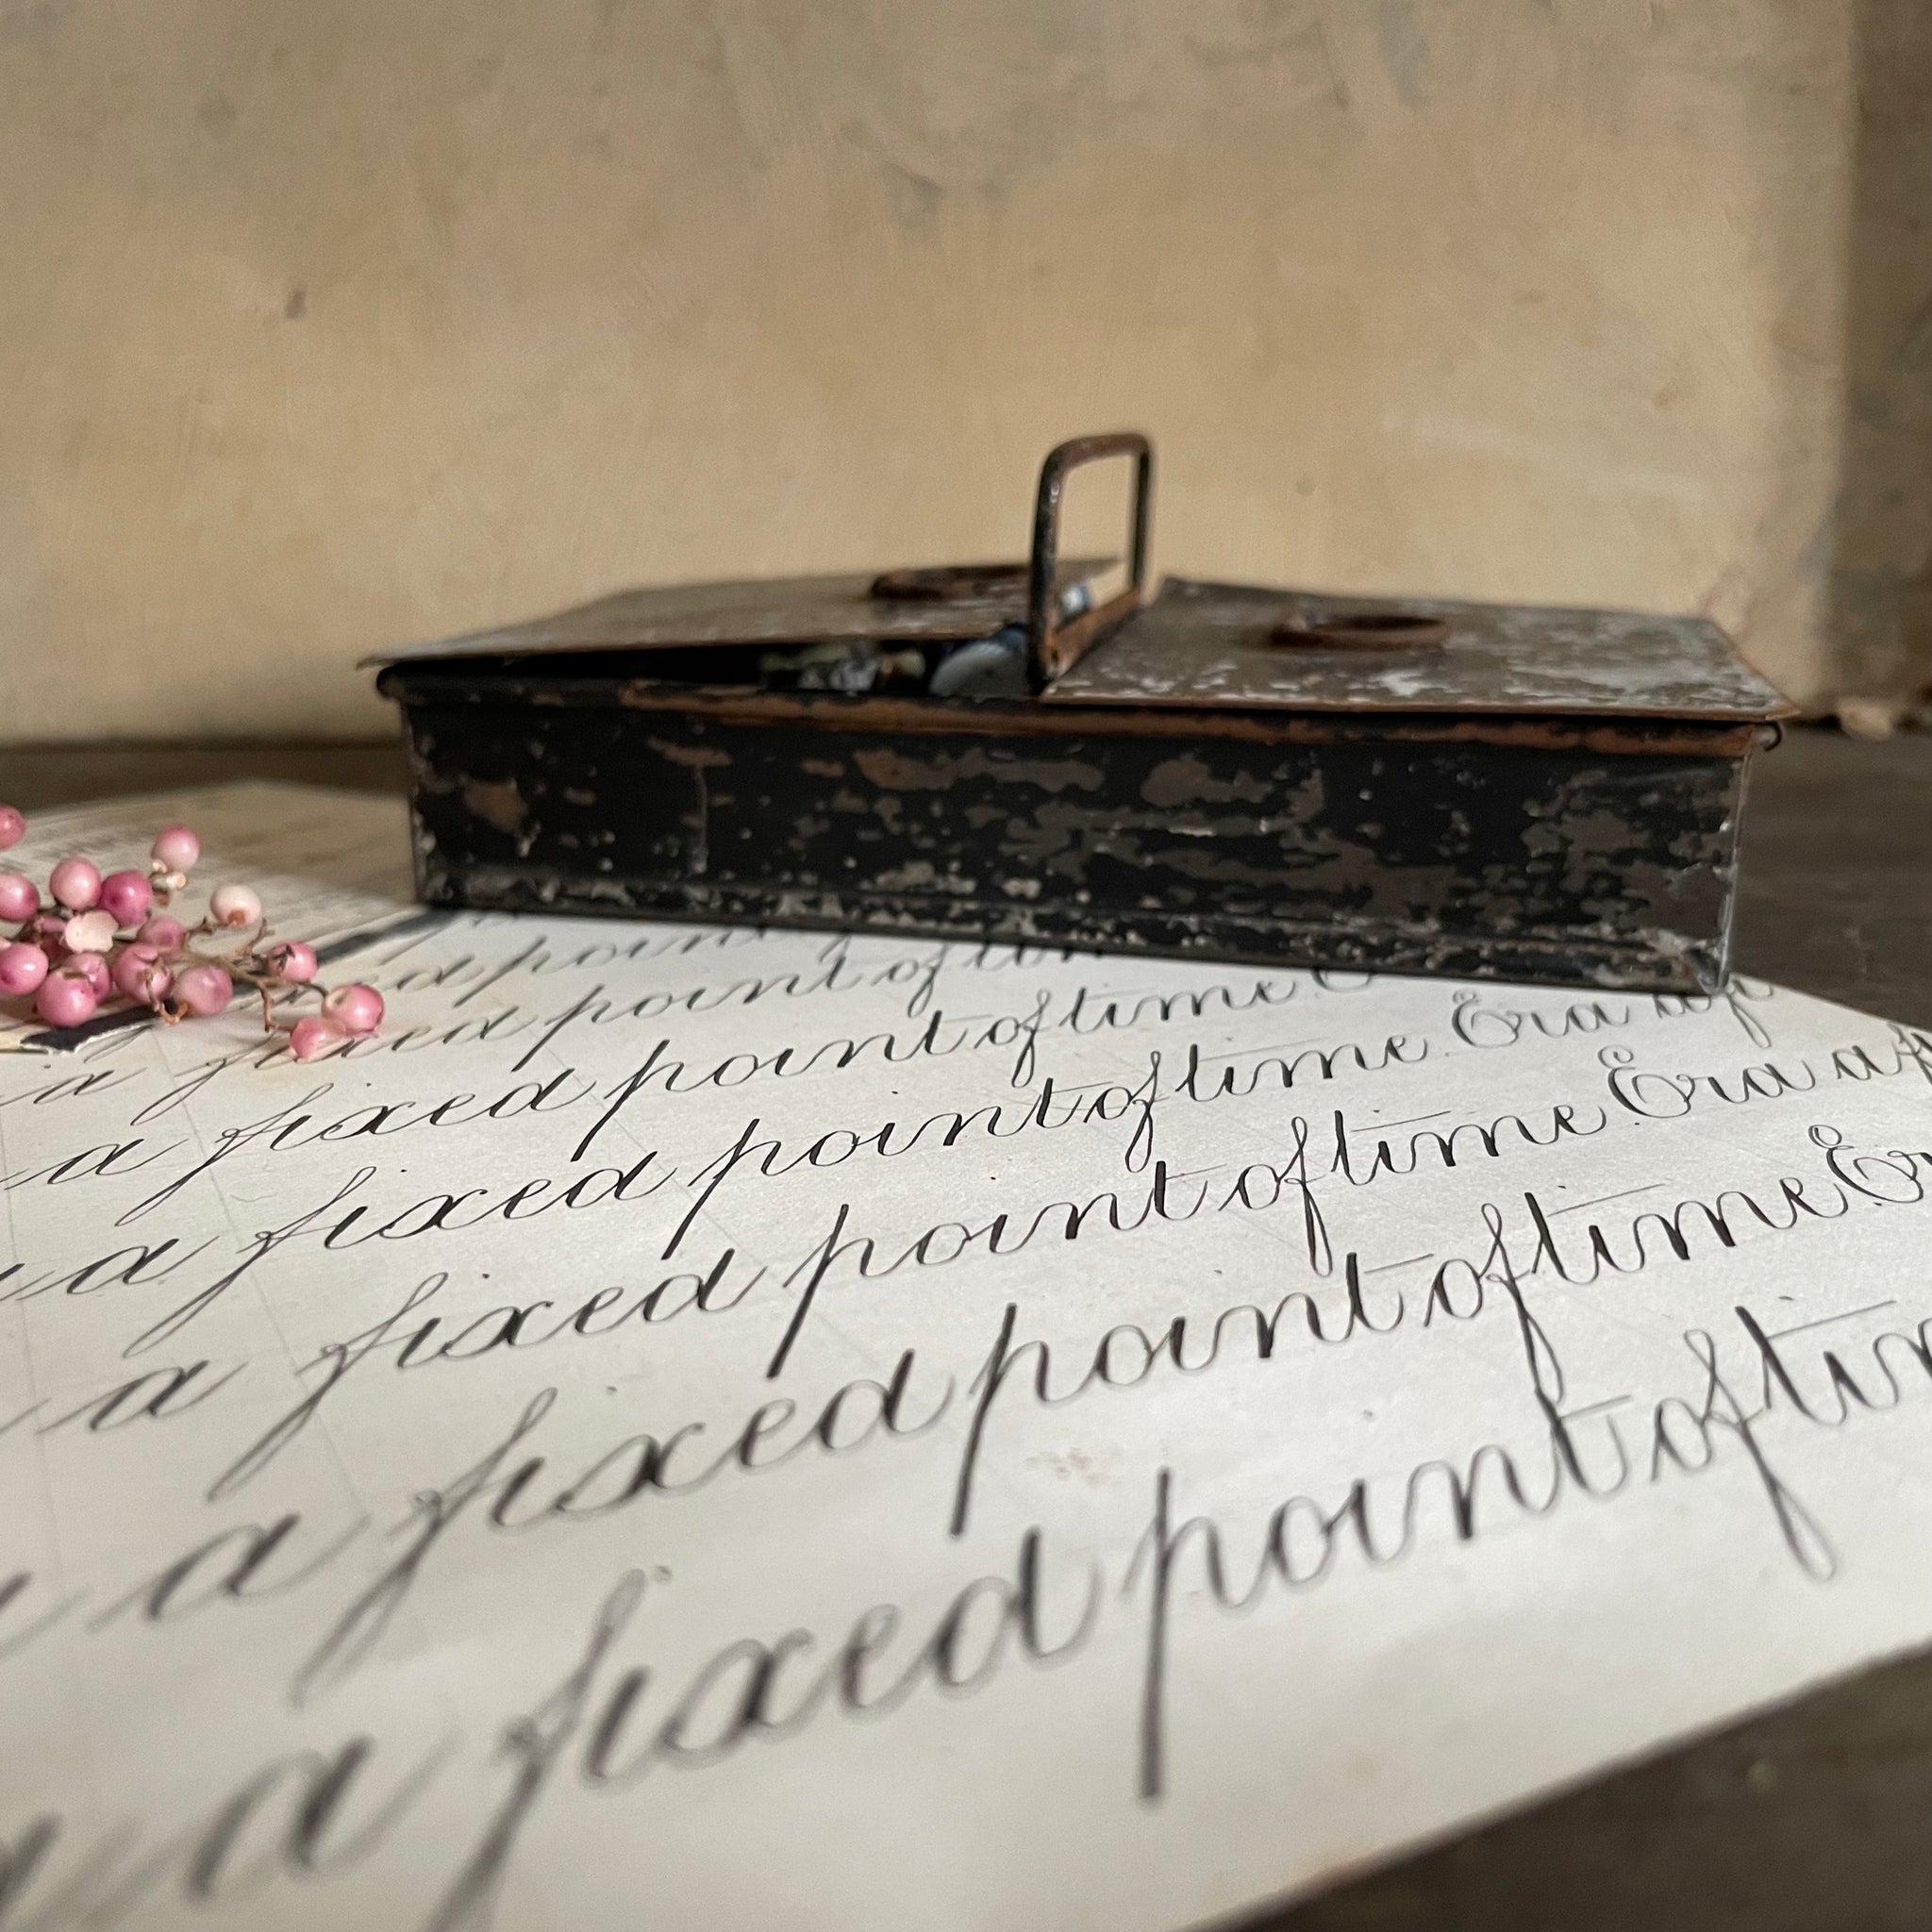 ed point
a fixed point of tim
a fixed point of time E
a fixed point of time Era a f
a fixed point of time Era a f
a fixed point of time Er
a fixed point of tim